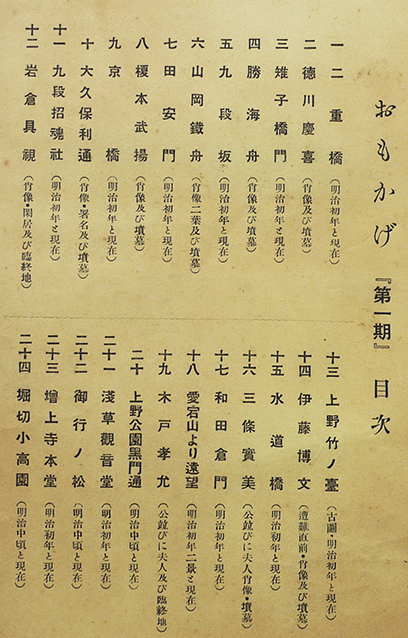 おもかげ『第一期』目次
一 二重橋（明治初年と現在）
二 德川慶喜（肖像及び墳墓）
三 雉子橋門（明治初年と現在）
四 勝海舟（肖像及び墳墓）
五 九段坂（明治初年と現在）
六 山岡鐵舟（肖像二葉及び墳墓）
七 田安門（明治初年と現在）
八 榎本武揚（肖像及び墳墓）
九 京橋（明治初年と現在）
十 大久保利通（肖像・署名及び墳墓）
十一 九段招魂社（明治初年と現在）
十二 岩倉具視（肖像・閑居及び臨終地）
十三 上野竹ノ臺（古圖・明治初年と現在）
十四 伊藤博文（遭難直前・肖像及び墳墓）
十五 水道橋（明治初年と現在）
十六 三條實美（公並びに夫人肖像・墳墓）
十七 和田倉門（明治初年と現在）
十八 愛宕山より遠望（明治初年二景と現在）
十九 木戸孝允（公並びに夫人及び臨終地）
二十 上野公園黑門通（明治中頃と現在）
二十一 淺草觀音堂（明治初年と現在）
二十二 御行ノ松（明治中頃と現在）
二十三 增上寺本堂（明治初年と現在）
二十四 堀切小高園（明治中頃と現在）